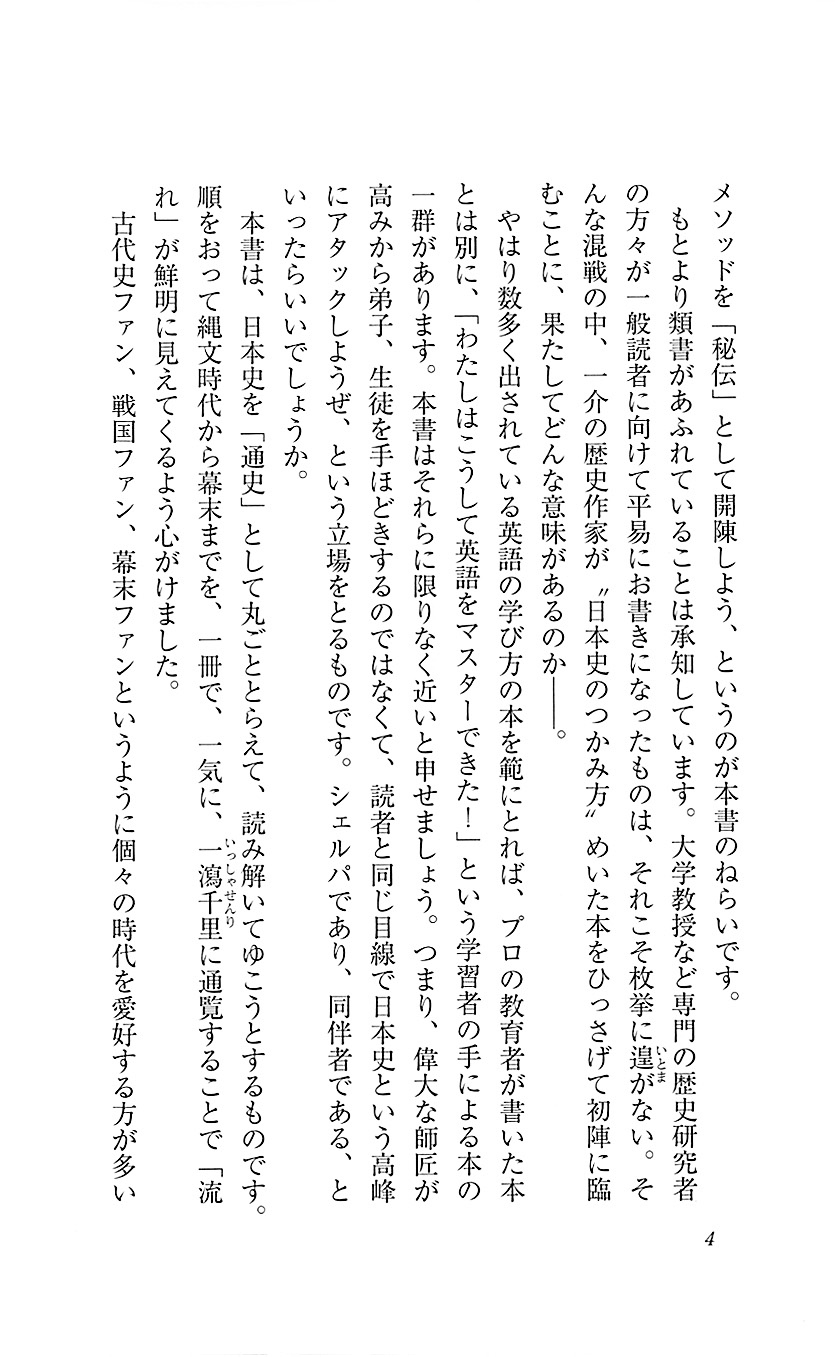 メソッドを「秘伝」として開陳しよう、というのが本書のねらいです。
もとより類書があふれていることは承知しています。大学教授など専門の歴史研究者
の方々が一般読者に向けて平易にお書きになったものは、それこそ枚挙に遑がない。そ
いとま
んな混戦の中、一介の歴史作家が〝日本史のつかみ方〟めいた本をひっさげて初陣に臨
むことに、果たしてどんな意味があるのか――。
やはり数多く出されている英語の学び方の本を範にとれば、プロの教育者が書いた本
とは別に、「わたしはこうして英語をマスターできた！」という学習者の手による本の
一群があります。本書はそれらに限りなく近いと申せましょう。つまり、偉大な師匠が
高みから弟子、生徒を手ほどきするのではなくて、読者と同じ目線で日本史という高峰
にアタックしようぜ、という立場をとるものです。シェルパであり、同伴者である、と
いったらいいでしょうか。
本書は、日本史を「通史」として丸ごととらえて、読み解いてゆこうとするものです。
順をおって縄文時代から幕末までを、一冊で、一気に、一瀉千里に通覧することで「流
いっしゃせんり
れ」が鮮明に見えてくるよう心がけました。
古代史ファン、戦国ファン、幕末ファンというように個々の時代を愛好する方が多い
4